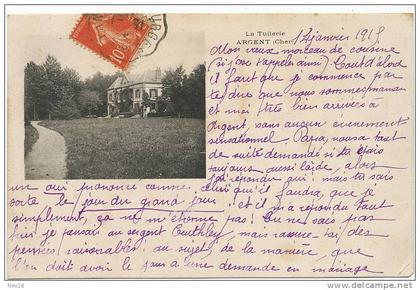 La Tuilerie
ARGENT (Cher)
12 janvier 1915
Mon vieux morceau de cousine
(si j'ose t'appeler ainsi) Tout d'abord
il faut que je commence par
te dire que nous sommes maman
et moi très bien arrivés à
Argent, sans aucun événement
sensationnel. Papa, nous a tout
de suite demandé si tu étais
toujours aussi laide, alors
j'ai répondu oui mais tu sais
un oui prononcé comme celui qu'il faudra que je
sorte le jour du grand jour! et il m'a répondu tout
simplement, ça ne m'étonne pas! Tu ne sais pas
je pensais au sergent mais rassure-toi, des
pensées raisonnables! au sujet de la manière que
l'on doit avoir le jour d'une demande en mariage
www.delcampe.net